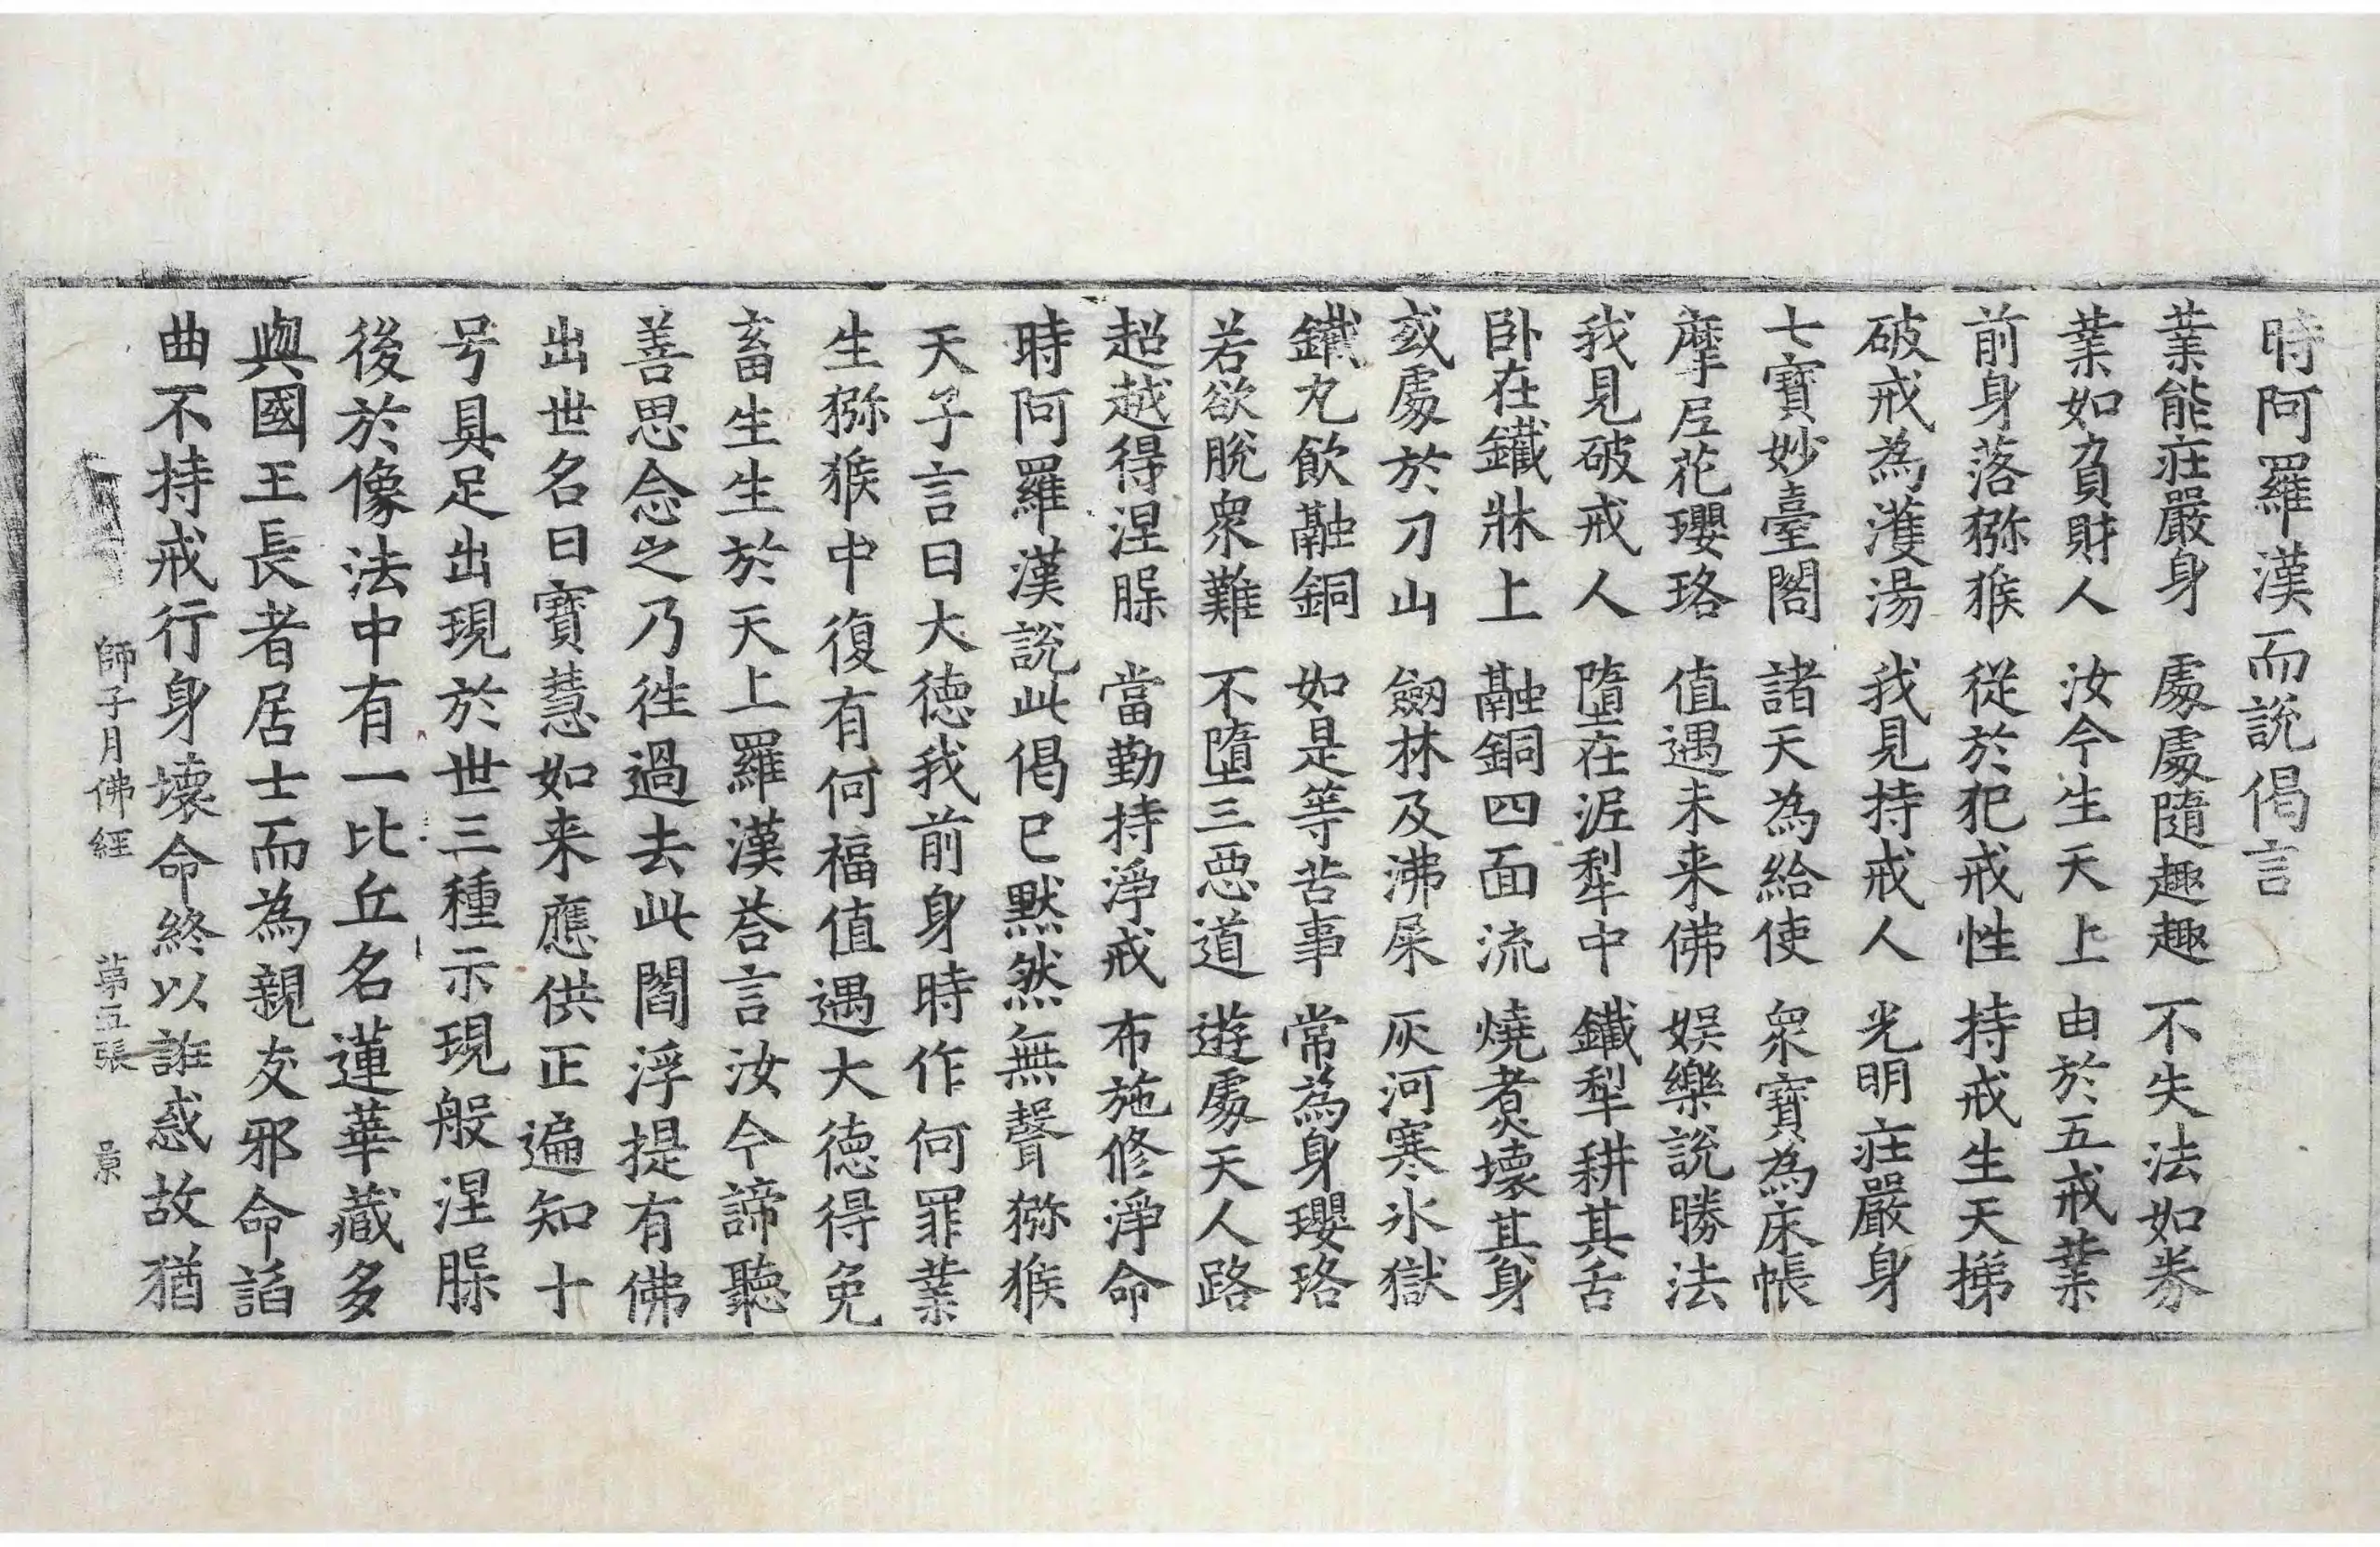 時阿羅漢而說偈言
業能莊嚴身 處處隨趣趣 不失法如券
業如負財人 汝今生天上 由於五戒業
前身落猕猴 從於犯戒性 持戒生天梯
破戒為濩湯 我見持戒人 光明莊嚴身
七寶妙臺閣 諸天為給使 衆寶為床帳
摩尼花瓔珞 值遇未来佛 娛樂說勝法
我見破戒人 墮在泥犁中 鐵犁耕其舌
卧在鐵牀上 融銅四面流 燒煮壞其身
或處於刀山 劒林及沸屎 灰河寒氷獄
鐵丸飲融銅 如是等苦事 常為身瓔珞
若欲脫衆難 不墮三惡道 遊處天人路
超越得涅槃 當勤持淨戒 布施修淨命
時阿羅漢說此偈已默然無聲猕猴
天子言曰大德我前身時作何罪業
生猕猴中復有何福值遇大德得免
畜生生於天上羅漢荅言汝今諦聽
善思念之乃徃過去此閻浮提有佛
出世名曰寶慧如来應供正遍知十
号具足出現於世三種示現般涅槃
後於像法中有一比丘名蓮華藏多
與國王長者居士而為親友邪命謟
曲不持戒行身壞命終以誑惑故猶
師子月佛經 第五張 景